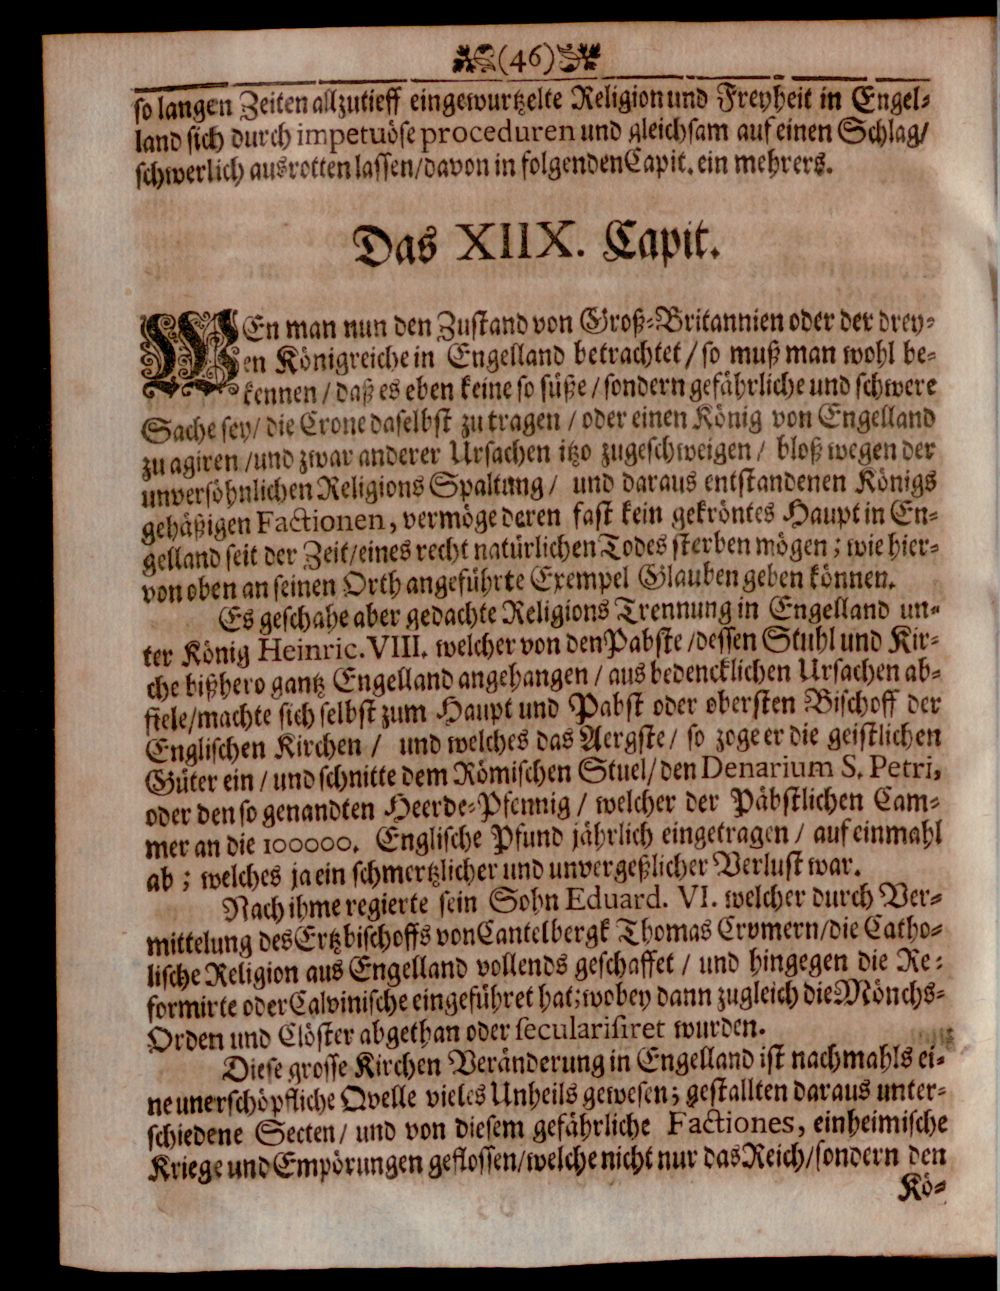 (46)
so langen Zeiten allzutieff eingewurtzelte Religion und Freyheit in Engel-
land sich durch impetuöse proceduren und gleichsam auf einen Schlag/
schwerlich ausrotten lassen/davon in folgenden Capit. ein mehrers.
Das XIIX. Capit.
WEn man nun den Zustand von Groß-Britannien oder der drey-
en Königreiche in Engelland betrachtet / so muß man wohl be-
kennen / daß es eben keine so süße / sondern gefährliche und schwere
Sache sey/ die Crone daselbst zu tragen / oder einen König von Engelland
zu agiren /und zwar anderer Ursachen itzo zugeschweigen / bloß wegen der
unversöhnlichen Religions Spaltung / und daraus entstandenen Königs
gehäßigen Factionen, vermöge deren fast kein gekröntes Haupt in En-
gelland seit der Zeit/eines recht natürlichen Todes sterben mögen ; wie hier-
von oben an seinen Orth angeführte Exempel Glauben geben können.
Es geschahe aber gedachte Religions Trennung in Engelland un-
ter König Heinric. VIII. welcher von den Pabste /dessen Stuhl und Kir-
che bißhero gantz Engelland angehangen / aus bedencklichen Ursachen ab-
fiele/machte sich selbst zum Haupt und Pabst oder obersten Bischoff der
Englischen Kirchen / und welches das Aergste / so zoge er die geistlichen
Güter ein / und schnitte dem Römischen Stuel/ den Denarium S. Petri,
oder den so genandten Heerde-Pfennig / welcher der Päbstlichen Cam-
mer an die 100000. Englische Pfund jährlich eingetragen / auf einmahl
ab ; welches ja ein schmertzlicher und unvergeßlicher Verlust war.
Nach ihme regierte sein Sohn Eduard. VI. welcher durch Ver-
mittelung des Ertzbischoffs von Cantelbergk Thomas Crymern/die Catho-
lische Religion aus Engelland vollends geschaffet / und hingegen die Re-
formirte oder Calvinische eingeführet hat; wobey dann zugleich die Mönchs-
Orden und Clöster abgethan oder secularisiret wurden.
Diese grosse Kirchen Veränderung in Engelland ist nachmahls ei-
ne unerschöpfliche Qvelle vieles Unheils gewesen; gestallten daraus unter-
schiedene Secten / und von diesem gefährliche Factiones, einheimische
Kriege und Empörungen geflossen/welche nicht nur das Reich/sondern den
Kö-